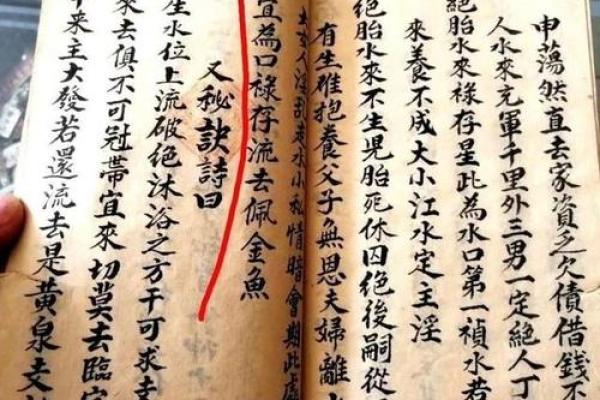 申蕩然直去家資乏欠債借錢不
人水來充軍千里外三男一定絕人丁
絕胎水來祿存星此為水口第一禎水若
來養不成大小江水定主淫
絕胎水來不生児胎死休囚絕後嗣從
有生雖抱養父子無恩夫婦離
女人淫乱走水小私情暗會期此處
宜為口祿存流去佩金魚
又秘訣詩曰
生水位上流破絕沐浴之方干可求
來去俱不可冠帶宜來切莫去臨官
來主大發若還流去是黃泉